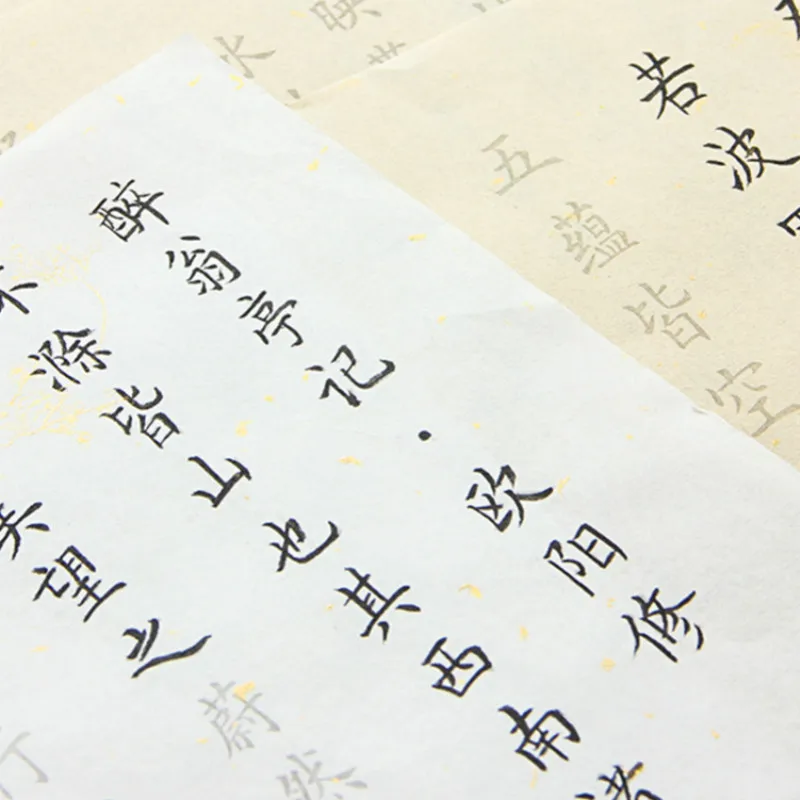 若波
五蕴皆空
映带
水
醉翁亭记·欧阳修
滁皆山也其西南诸
美望之蔚然
行